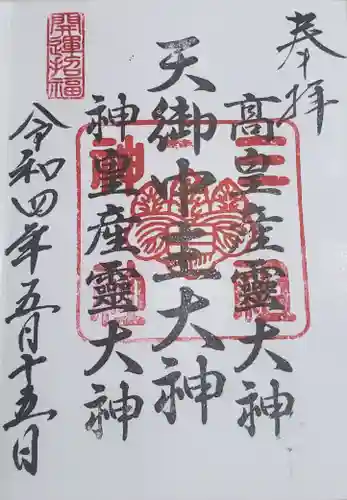 奉拝
高皇産霊大神
天御中主大神
神皇産霊大神
令和四年五月十五日
開運招福
三神社